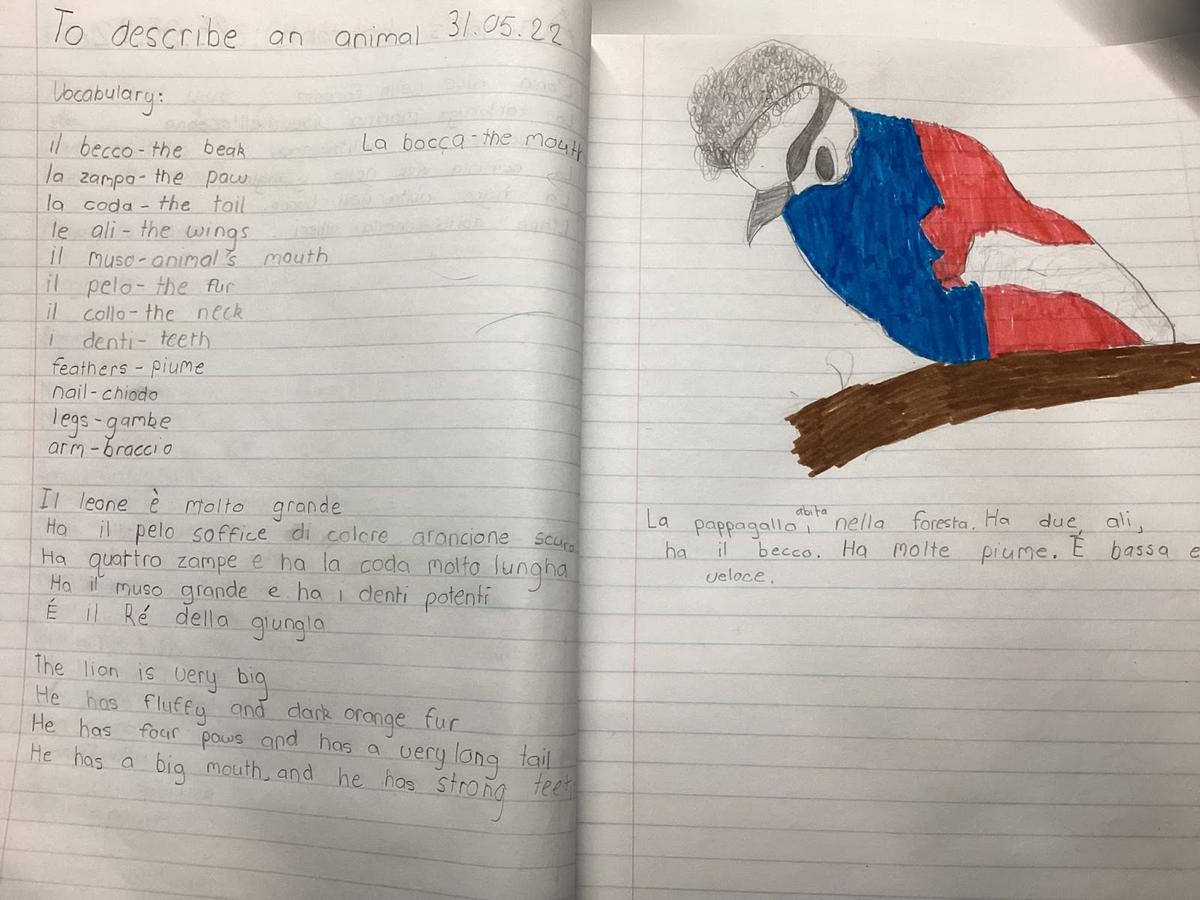 To describe an animal 31.05.22
Vocabulary:
il becco - the beak
La bocca - the mouth
la zampa - the paw
la coda - the tail
le ali - the wings
il muso - animal's mouth
il pelo - the fur
il collo - the neck
i denti - teeth
feathers - piume
nail - chiodo
legs - gambe
arm - braccio
Il leone è molto grande
Ha il pelo soffice di colore arancione scuro
Ha quattro zampe e ha la coda molto lungha
Ha il muso grande e ha i denti potenti
É il Ré della giungla
The lion is very big
He has fluffy and dark orange fur
He has four paws and has a very long tail
He has a big mouth, and he has strong teet
La pappagallo abita nella foresta. Ha due, ali,
ha il becco. Ha molte piume. È bassa e
veloce.